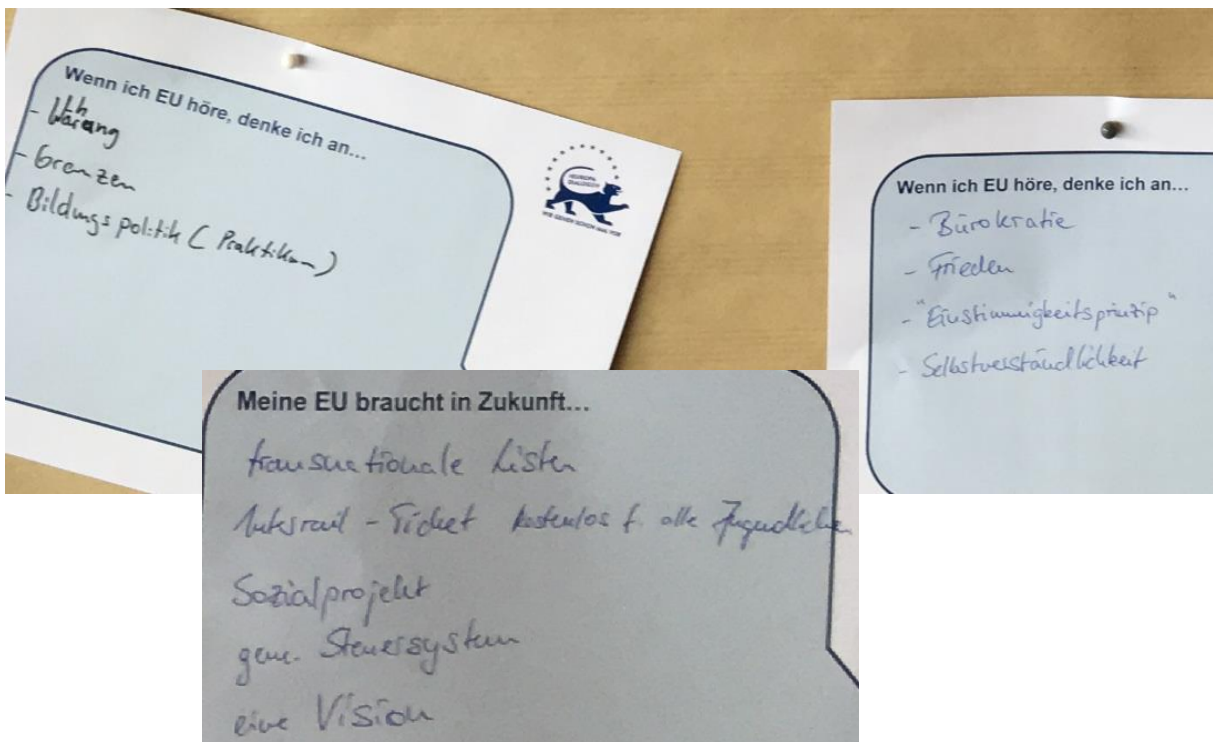 Wenn ich EU höre, denke ich an...
- Währung
- Grenzen
- Bildungspolitik (Praktikum)
#EUROPA
DIALOGE
WIR GEHEN SCHON MAL VOR
Wenn ich EU höre, denke ich an...
- Bürokratie
- Frieden
- "Einstimmigkeitsprinzip"
- Selbstverständlichkeit
Meine EU braucht in Zukunft...
transnationale Listen
Interrail-Ticket kostenlos f. alle Jugendlichen
Sozialprojekt
gem. Steuersystem
eine Vision